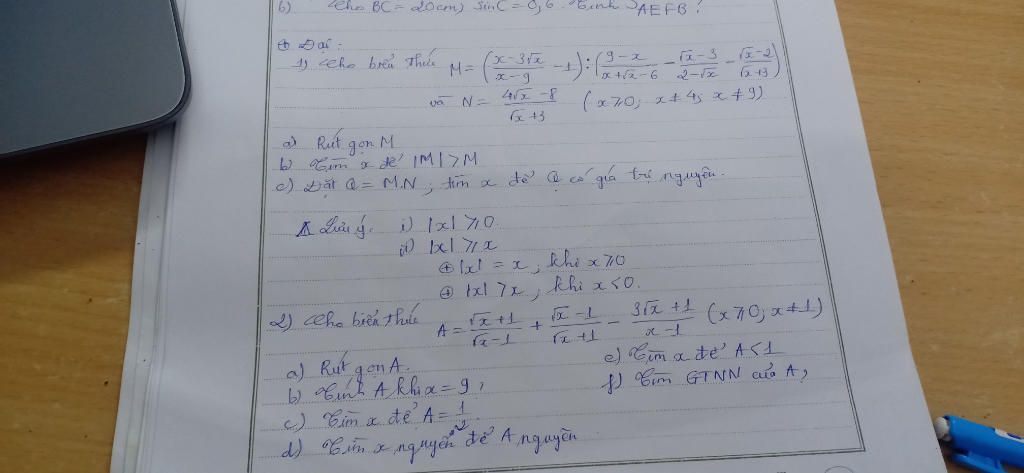 b) Cho BC = 20cm, sinC = 0,6. Tính S_AEFB?
⊕ Đại:
1) Cho biểu thức M = ((x - 3√x)/(x - 9) - 1) : ((9 - x)/(x + √x - 6) - (√x - 3)/(2 - √x) - (√x - 2)/(√x + 3))
và N = (4√x - 8)/(√x + 3) (x ⩾ 0; x ≠ 4; x ≠ 9)
a) Rút gọn M
b) Tìm x để |M| > M
c) Đặt Q = M.N; tìm x để Q có giá trị nguyên.
Lưu ý. i) |x| ⩾ 0
ii) |x| ⩾ x
⊕ |x| = x, khi x ⩾ 0
⊕ |x| > x, khi x < 0.
2) Cho biểu thức A = (√x + 1)/(√x - 1) + (√x - 1)/(√x + 1) - (3√x + 1)/(x - 1) (x ⩾ 0; x ≠ 1)
a) Rút gọn A.
b) Tính A khi x = 9,
c) Tìm x để A = 1/2.
d) Tìm x nguyên để A nguyên
e) Tìm x để A < 1
f) Tìm GTNN của A,